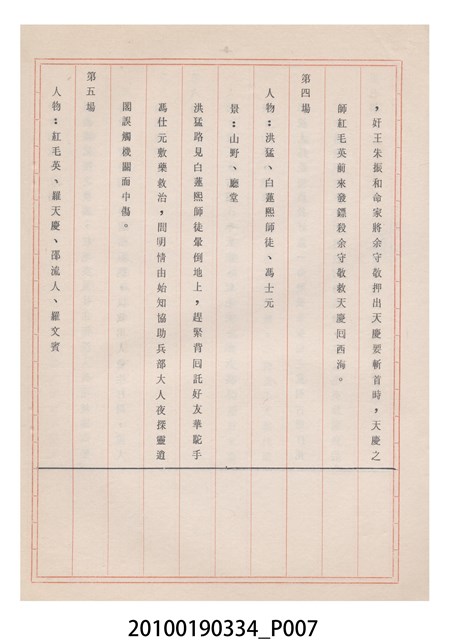 ，奸王朱振和命家將余守敬押出天慶要斬首時，天慶之
師紅毛英前來發鏢殺余守敬救天慶回西海。
第四場
人物：洪猛、白蓮熙師徒、馮士元
景：山野、廳堂
洪猛路見白蓮熙師徒暈倒地上，趕緊背回託好友華駝手
馮仕元敷藥救治，問明情由始知協助兵部大人夜探靈逍
閣誤觸機關而中傷。
第五場
人物：紅毛英、羅天慶、邵流人、羅文賓
20100190334_P007